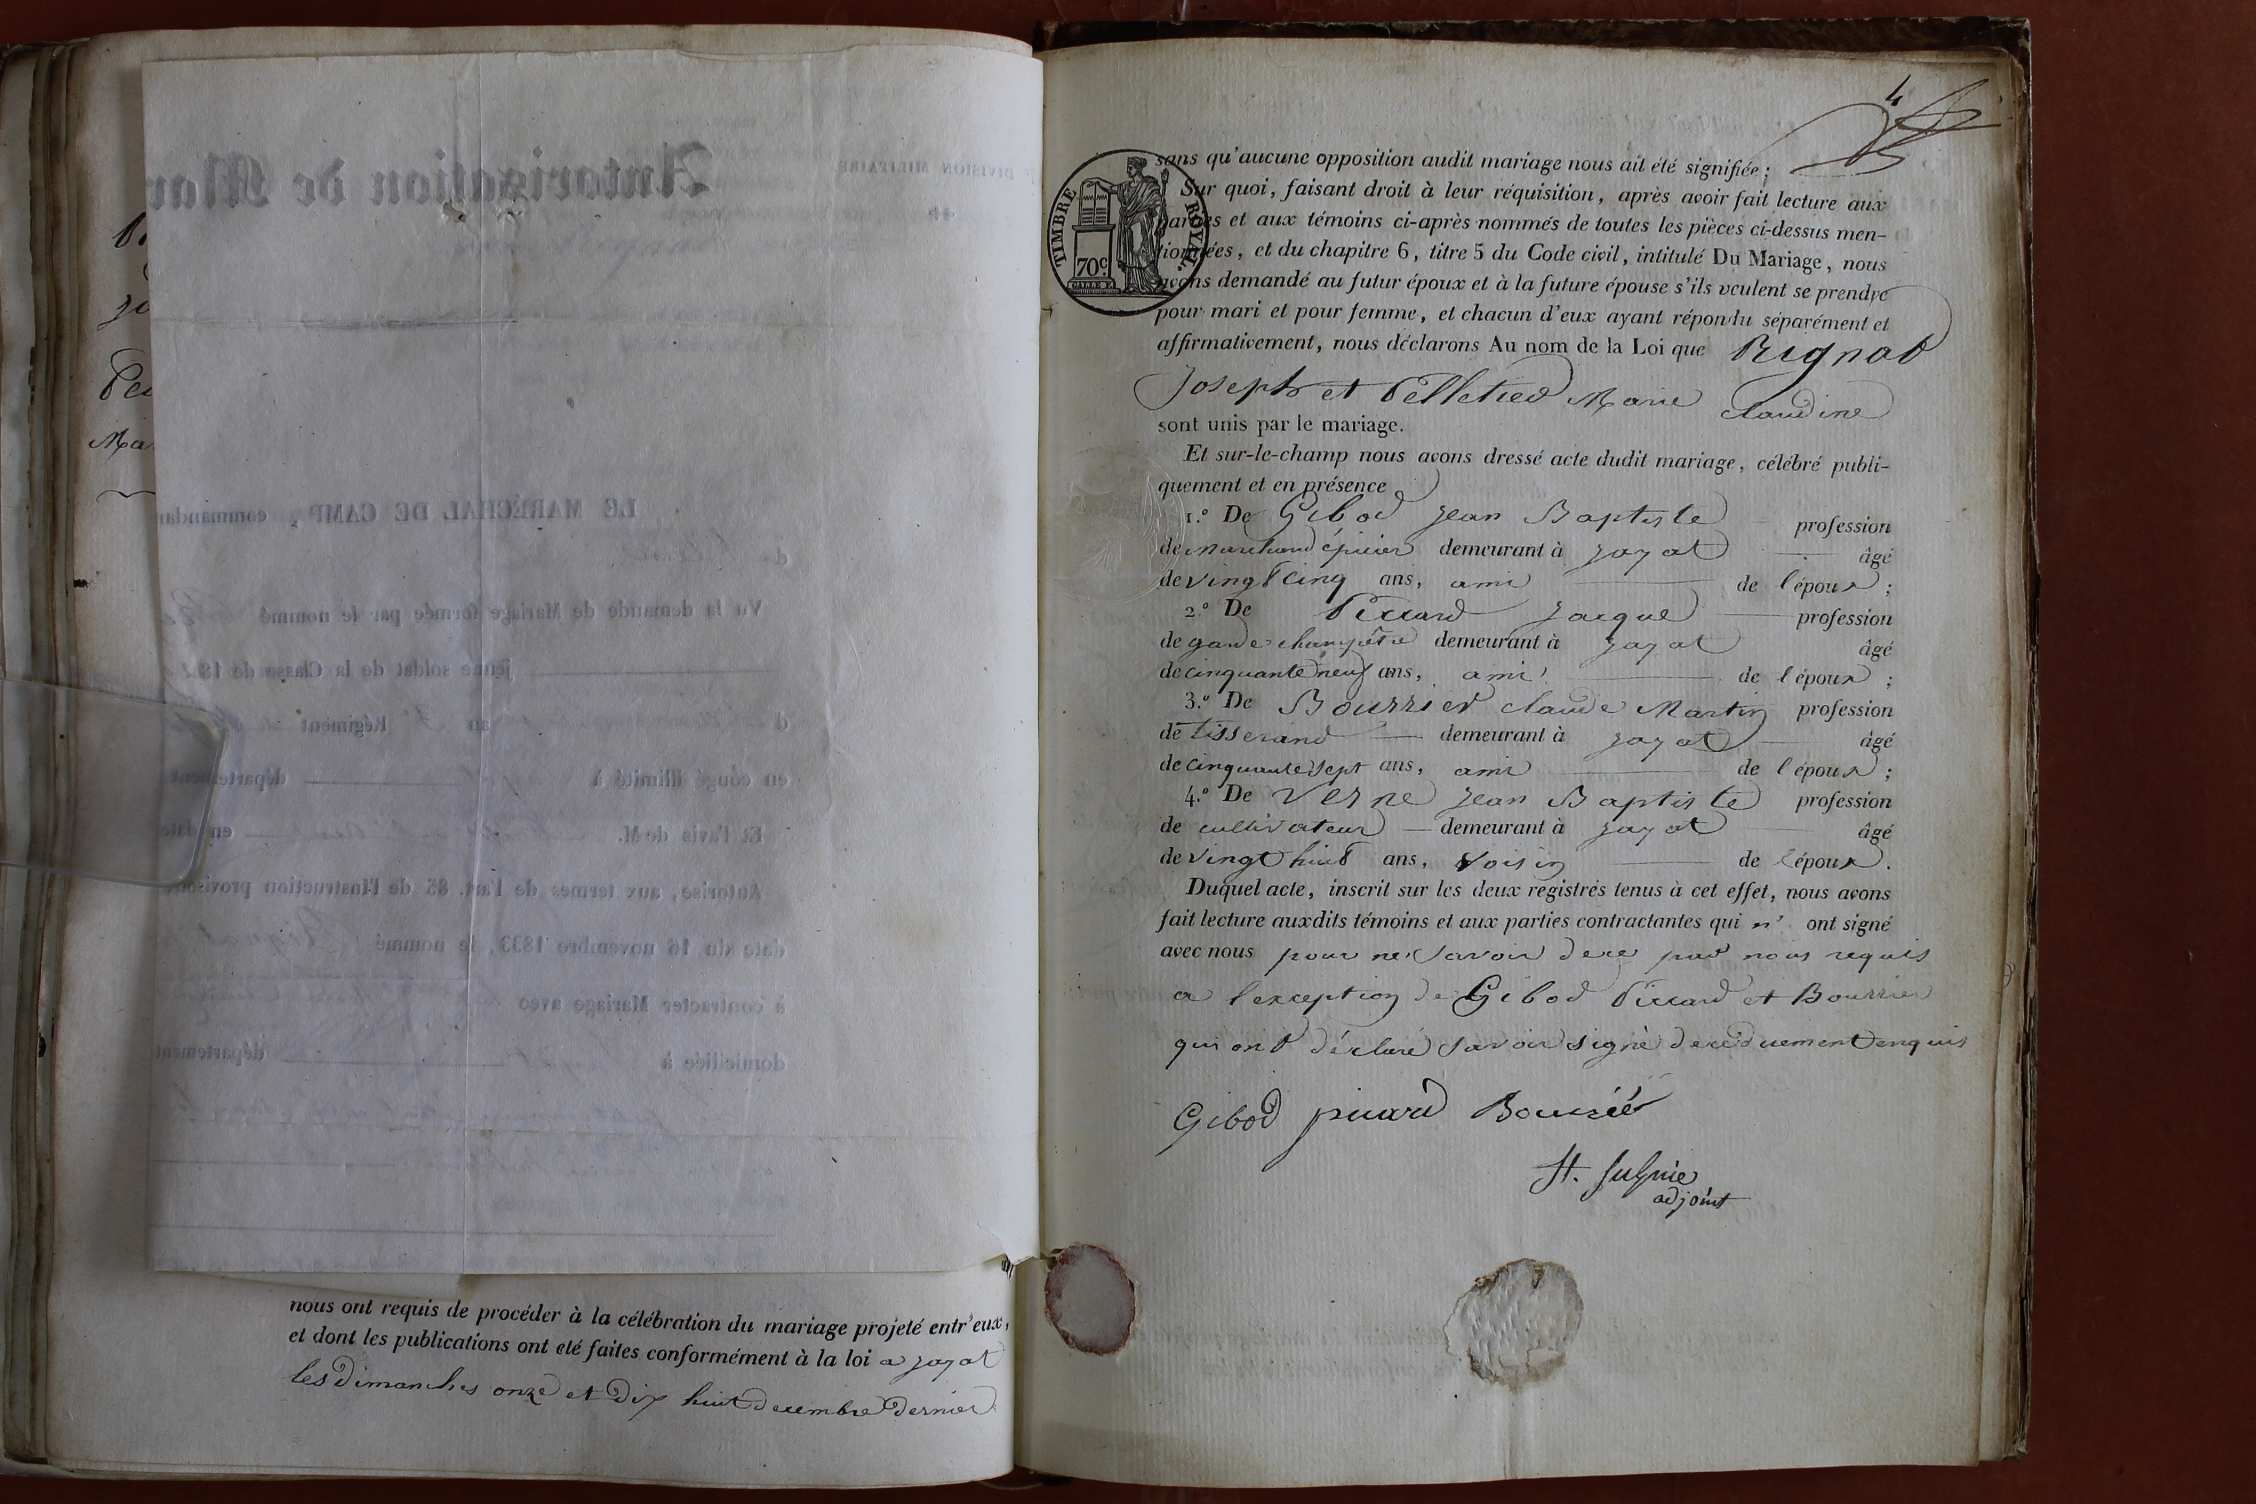 Autorisation de Mar
DIVISION MILITAIRE
LE MARÉCHAL DE CAMP, comman
Vu la demande de Mariage formée par le nommé
jeune soldat de la Classe de 18
au Régiment
en congé illimité à département
Et l'avis de M. en date
Autorise, aux termes de l'art. 85 de l'Instruction provisoire
date du 16 novembre 1833, le nommé
à contracter Mariage avec
domiciliée à département
nous ont requis de procéder à la célébration du mariage projeté entr'eux,
et dont les publications ont été faites conformément à la loi a jayat
les Dimanches onze et Dix huit decembre Dernier
4
TIMBRE ROYAL.
70c
sans qu'aucune opposition audit mariage nous ait été signifiée;
Sur quoi, faisant droit à leur réquisition, après avoir fait lecture aux
parties et aux témoins ci-après nommés de toutes les pièces ci-dessus men-
tionnées, et du chapitre 6, titre 5 du Code civil, intitulé Du Mariage, nous
avons demandé au futur époux et à la future épouse s'ils veulent se prendre
pour mari et pour femme, et chacun d'eux ayant répondu séparément et
affirmativement, nous déclarons Au nom de la Loi que Rignat
Joseph et Pelletier Marie Claudine
sont unis par le mariage.
Et sur-le-champ nous avons dressé acte dudit mariage, célébré publi-
quement et en présence
1.° De Gibod Jean Baptiste profession
de marchand épicier demeurant à jayat âgé
de vingt cinq ans, ami de l'époux;
2.° De Piccard Jacque profession
de garde champêtre demeurant à jayat âgé
de cinquante neuf ans, ami de l'époux;
3.° De Bourrier Claude Martin profession
de tisserand demeurant à jayat âgé
de cinquante sept ans, ami de l'époux;
4.° De Verne Jean Baptiste profession
de cultivateur demeurant à jayat âgé
de vingt huit ans, voisin de l'époux.
Duquel acte, inscrit sur les deux registres tenus à cet effet, nous avons
fait lecture auxdits témoins et aux parties contractantes qui n' ont signé
avec nous pour ne savoir de ce par nous requis
a l'exception de Gibod Piccard et Bourrier
qui ont déclaré savoir signé de ce duement enquis
Gibod picard Bourrié
adjoint